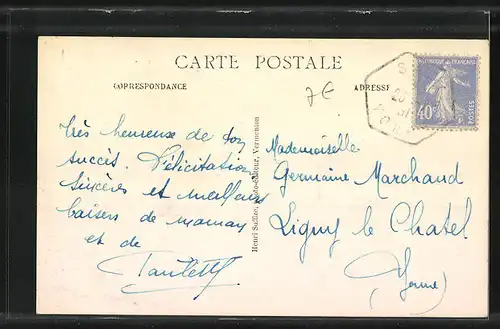 CARTE POSTALE
CORRESPONDANCE
ADRESSE
7€
REPUBLIQUE FRANÇAISE
40c
POSTES
Très heureuse de ton
succès. Félicitations
sincères et meilleurs
baisers de maman
et de
Paulette
Henri Sallier, Photo-Editeur, Vermenton
Mademoiselle
Germaine Marchand
Ligny le Chatel
(Yonne)